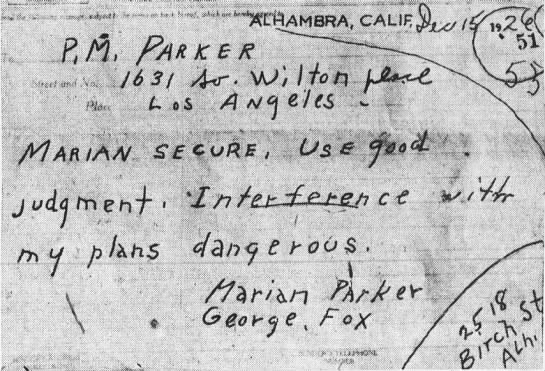 ALHAMBRA, CALIF. Dec 15 1926
51
55
P.M. PARKER
Street and No. 1631 So. Wilton place
Place Los Angeles -
MARIAN SECURE. Use good
judgment. Interference with
my plans dangerous.
Marian Parker
George. Fox
2518
Birch St
Alh.
SENDER'S TELEPHONE
NUMBER